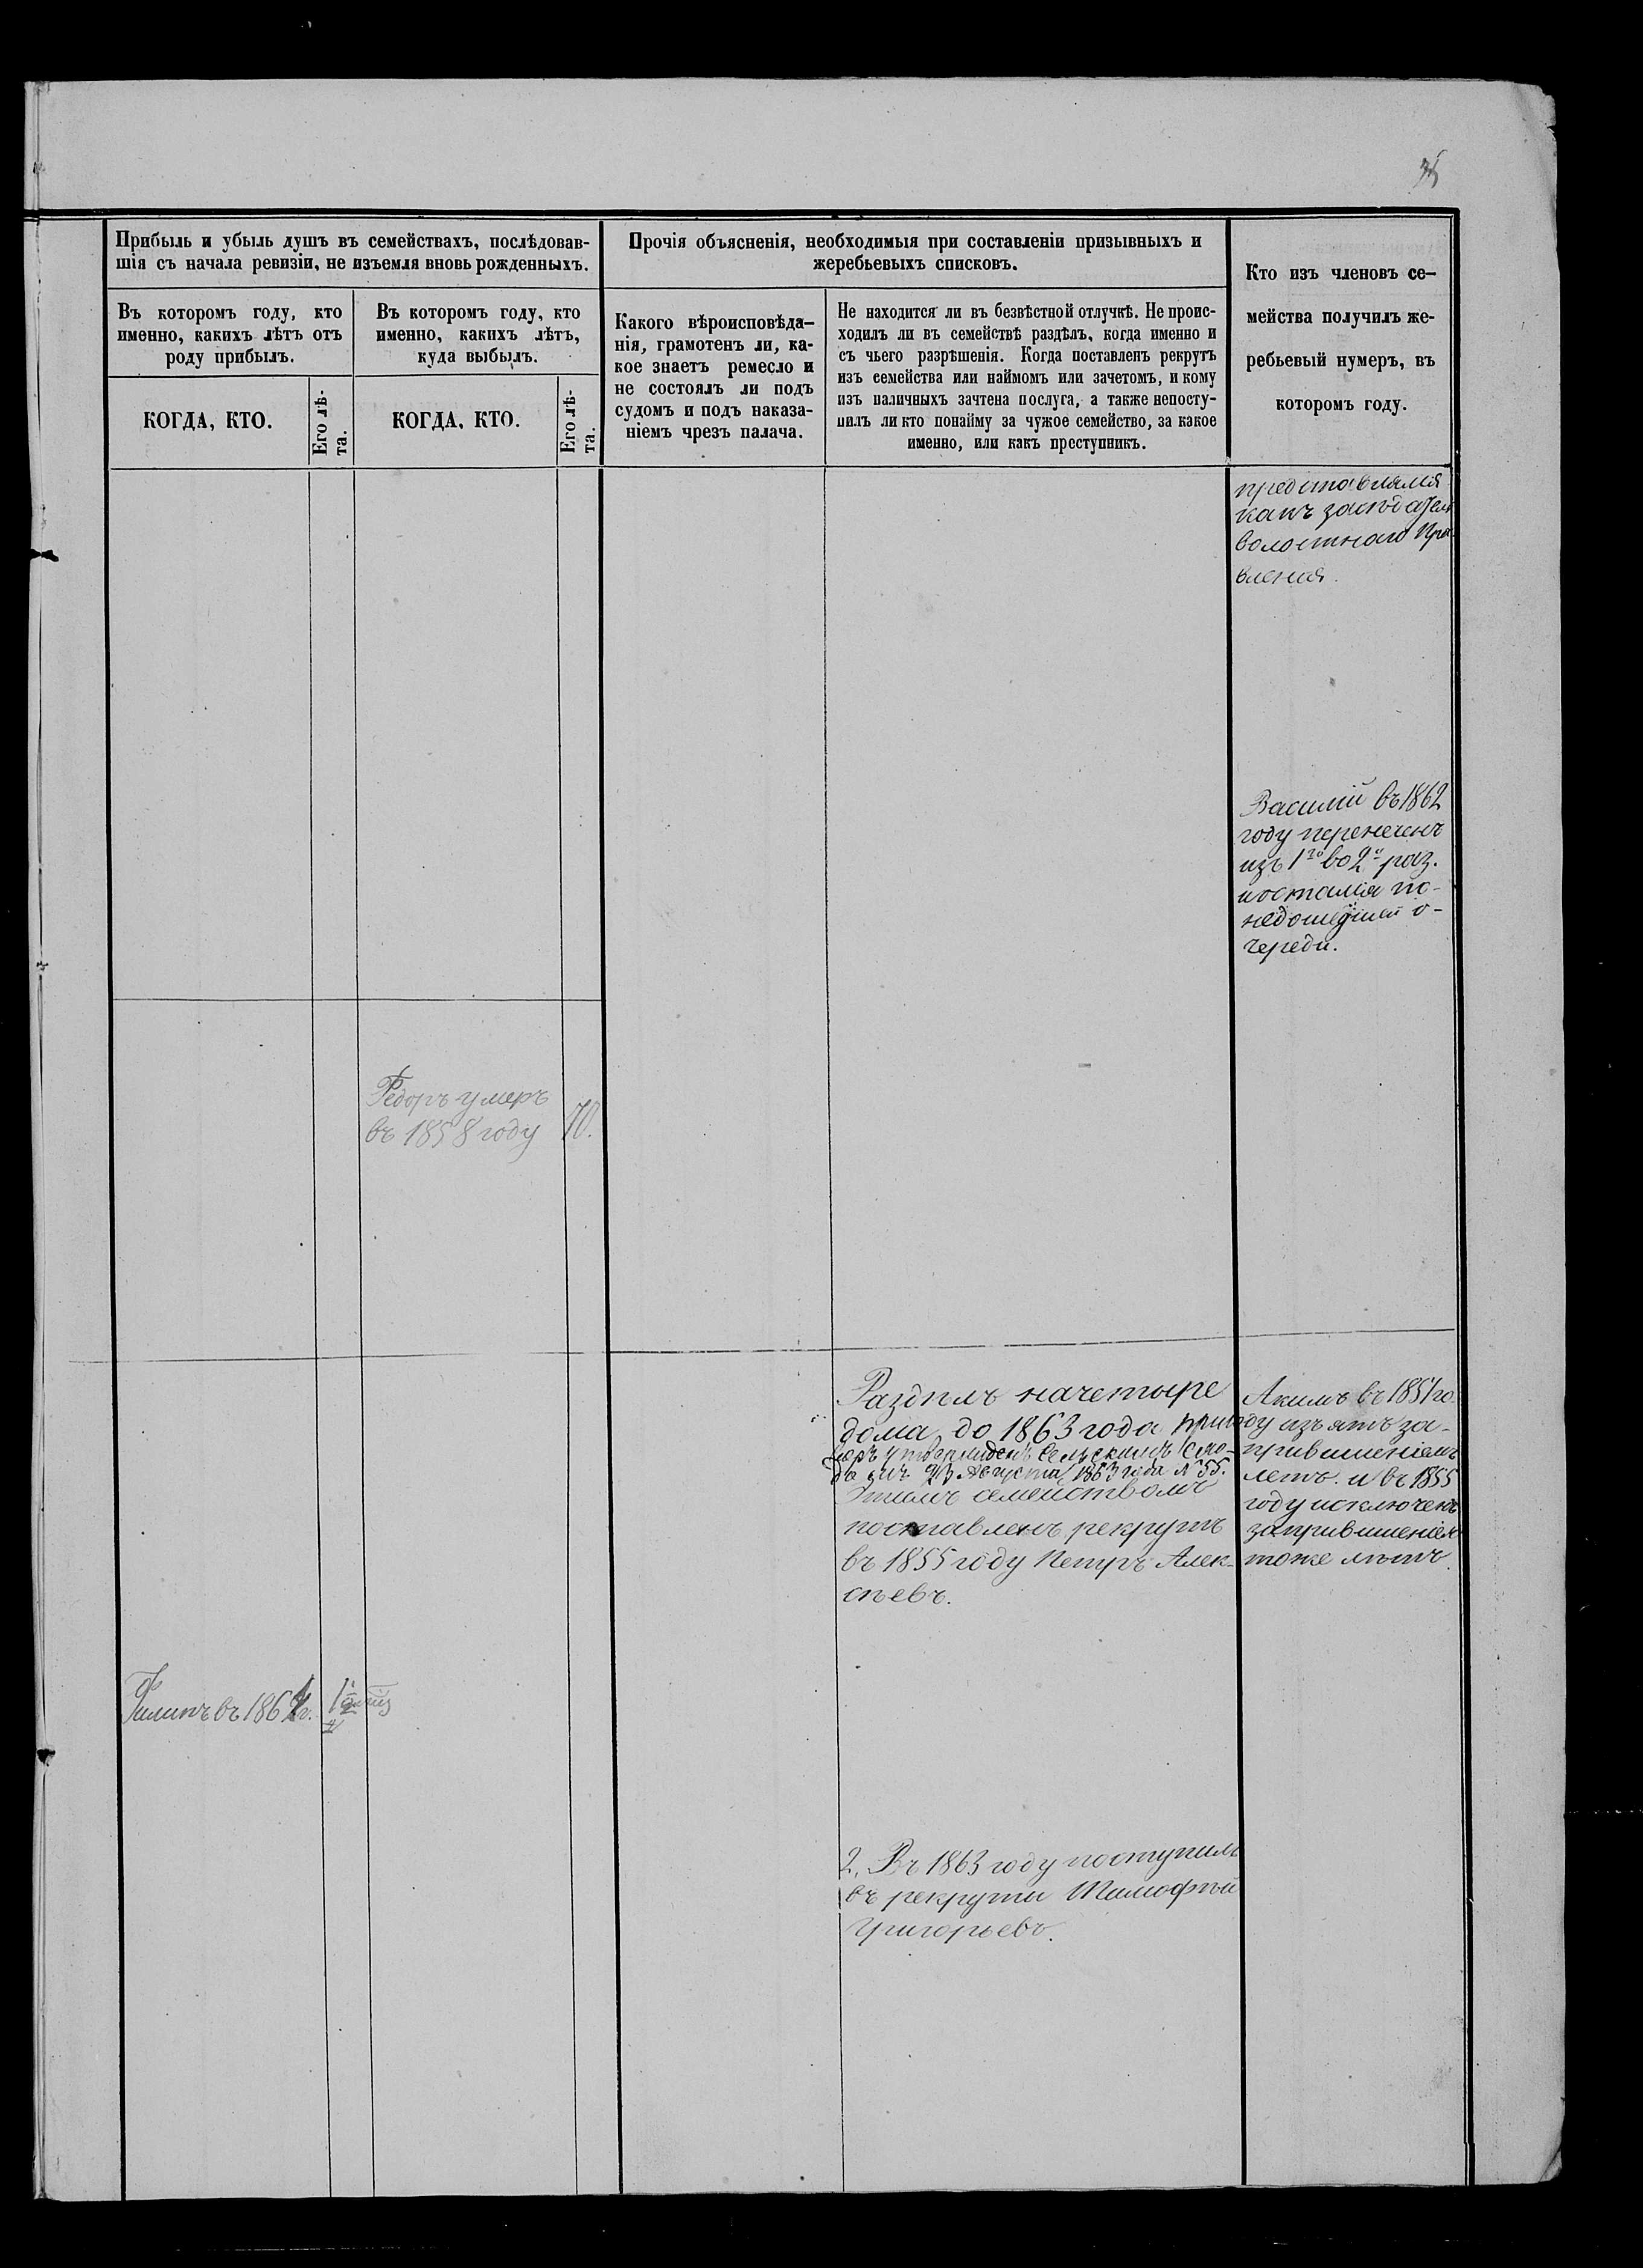 Прибыль и убыль душъ въ семействахъ, послѣдовав-
шія съ начала ревизіи, не изъемля вновь рожденныхъ.
Въ которомъ году, кто
именно, какихъ лѣтъ отъ
роду прибылъ.
Въ которомъ году, кто
именно, какихъ лѣтъ,
куда выбылъ.
КОГДА, КТО.
Его лѣ-
та.
КОГДА, КТО.
Его лѣ-
та.
Прочія объясненія, необходимыя при составленіи призывныхъ и
жеребьевыхъ списковъ.
Какого вѣроисповѣда-
нія, грамотенъ ли, ка-
кое знаетъ ремесло и
не состоялъ ли подъ
судомъ и подъ наказа-
ніемъ чрезъ палача.
Не находится ли въ безвѣстной отлучкѣ. Не проис-
ходилъ ли въ семействѣ раздѣлъ, когда именно и
съ чьего разрѣшенія. Когда поставленъ рекрутъ
изъ семейства или наймомъ или зачетомъ, и кому
изъ наличныхъ зачтена послуга, а также непосту-
пилъ ли кто понайму за чужое семейство, за какое
именно, или какъ преступникъ.
Кто изъ членовъ се-
мейства получилъ же-
ребьевый нумеръ, въ
которомъ году.
представлялся
какъ засѣдатель
волостнаго Пра
вленія.
Василій въ 1862
году перечисленъ
изъ 1го во 2й раз.
и остался по-
недошедшей о-
череди.
Федоръ умеръ
въ 1858 году
70.
Раздѣлъ на четыре
дома, до 1863 года
Сельскимъ
23 Августа 1863 года № 55.
Этимъ семействомъ
поставленъ рекрутъ
въ 1855 году Петръ Алек-
сѣевъ.
Акимъ въ 1851 го-
ду изъятъ за-
прившеніемъ
летъ. и въ 1855
году исключенъ
запрившеніемъ
тоже лѣтъ.
Филипъ въ 186
2, Въ 1863 году поступилъ
въ рекруты Тимофѣй
Григорьевъ.